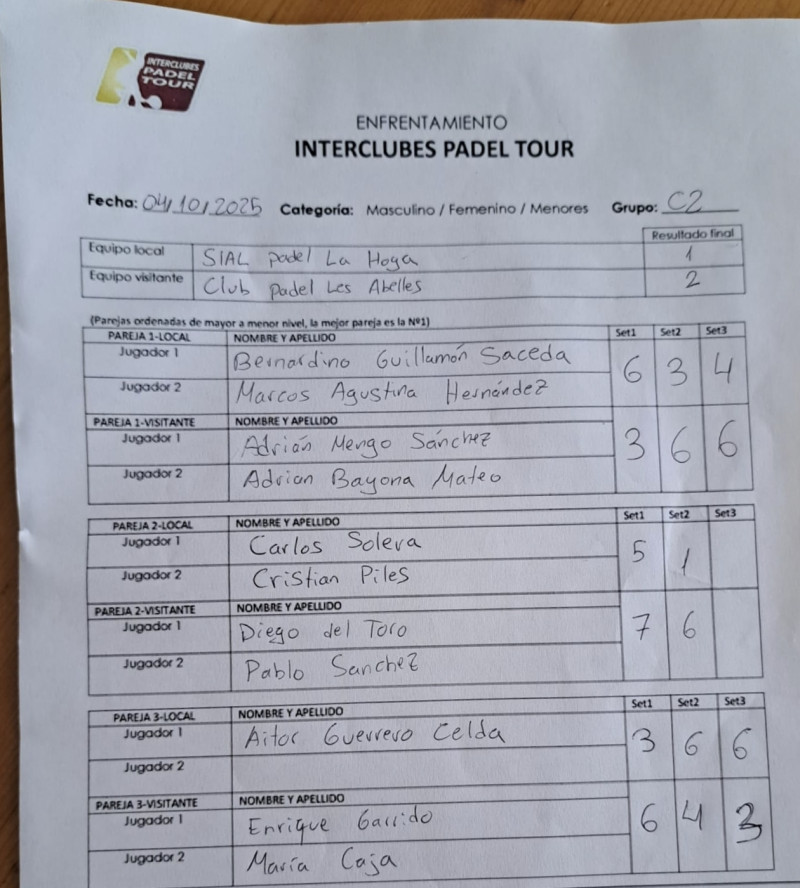 INTERCLUBES
PADEL
TOUR
ENFRENTAMIENTO
INTERCLUBES PADEL TOUR
Fecha: 04/10/2025 Categoría: Masculino / Femenino / Menores Grupo: C2
Resultado final
Equipo local SIAL padel La Hoya 1
Equipo visitante Club padel Les Abelles 2
(Parejas ordenadas de mayor a menor nivel, la mejor pareja es la Nº1)
PAREJA 1-LOCAL NOMBRE Y APELLIDO Set1 Set2 Set3
Jugador 1 Bernardino Guillamón Saceda 6 3 4
Jugador 2 Marcos Agustina Hernández
PAREJA 1-VISITANTE NOMBRE Y APELLIDO
Jugador 1 Adrián Mengo Sánchez 3 6 6
Jugador 2 Adrian Bayona Mateo
PAREJA 2-LOCAL NOMBRE Y APELLIDO Set1 Set2 Set3
Jugador 1 Carlos Soleva 5 1
Jugador 2 Cristian Piles
PAREJA 2-VISITANTE NOMBRE Y APELLIDO
Jugador 1 Diego del Toro 7 6
Jugador 2 Pablo Sanchez
PAREJA 3-LOCAL NOMBRE Y APELLIDO Set1 Set2 Set3
Jugador 1 Aitor Guerrero Celda 3 6 6
Jugador 2
PAREJA 3-VISITANTE NOMBRE Y APELLIDO
Jugador 1 Enrique Garrido 6 4 3
Jugador 2 María Caja